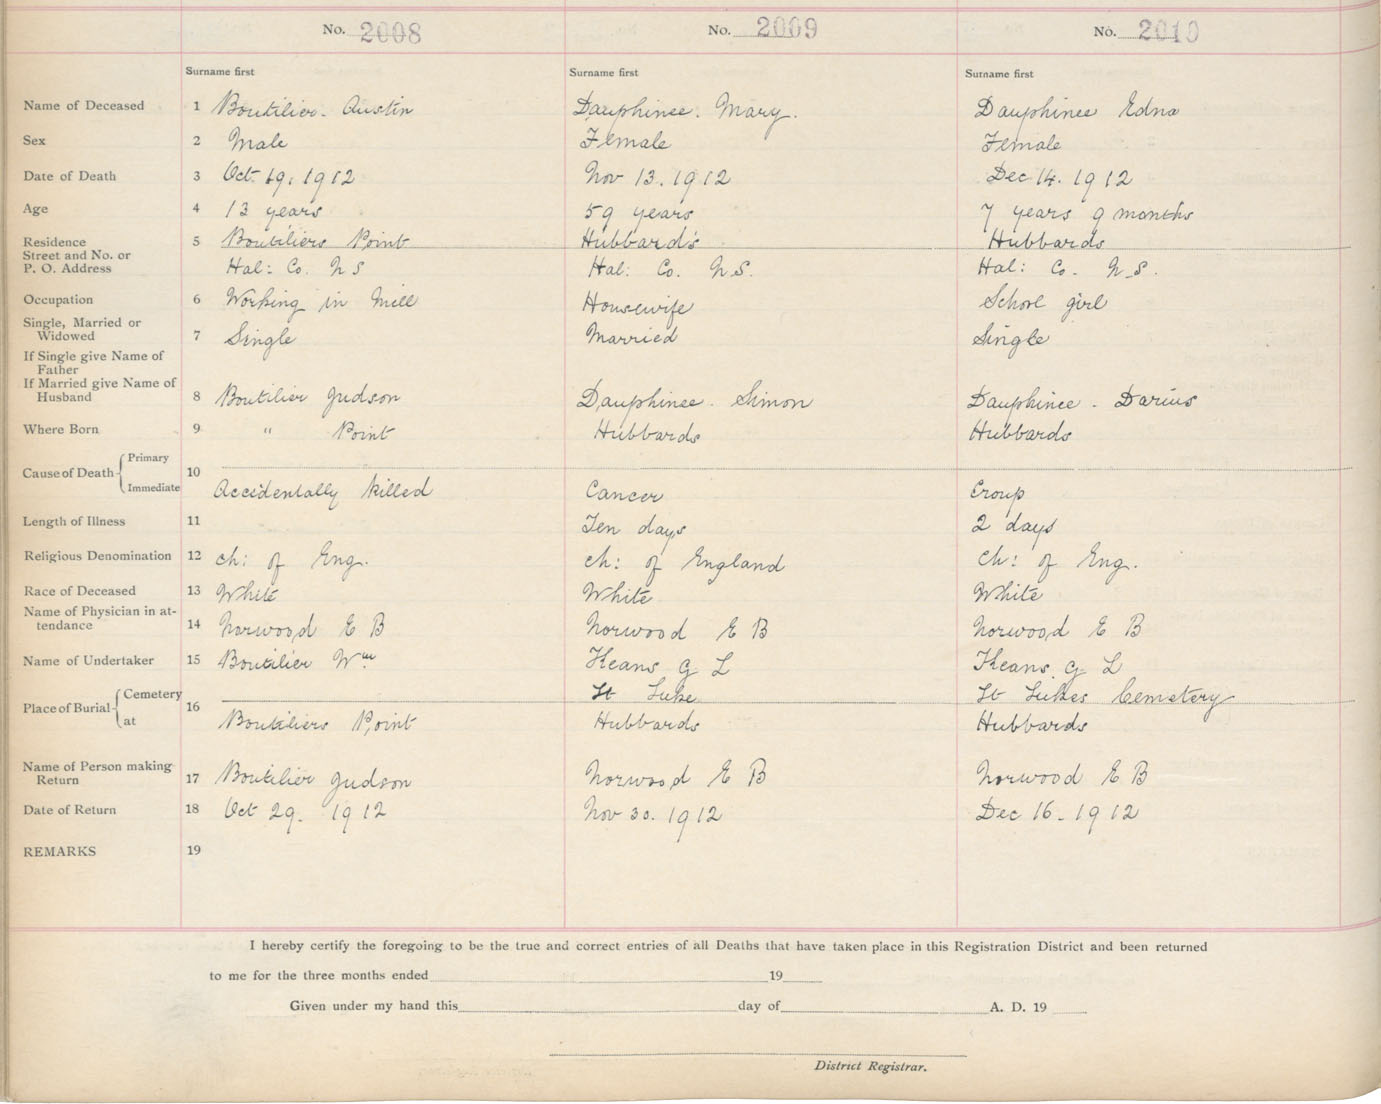 No. 2008 No. 2009 No. 2010
Surname first Surname first Surname first
Name of Deceased 1 Boutilier. Austin Dauphinee. Mary. Dauphinee Edna
Sex 2 Male Female Female
Date of Death 3 Oct 19. 1912 Nov 13. 1912 Dec 14. 1912
Age 4 13 years 59 years 7 years 9 months
Residence 5 Boutiliers Point Hubbard's Hubbards
Street and No. or
P. O. Address Hal: Co. N S Hal: Co. N.S. Hal: Co. N.S.
Occupation 6 Working in Mill Housewife School girl
Single, Married or
Widowed 7 Single Married Single
If Single give Name of
Father
If Married give Name of
Husband 8 Boutilier Judson Dauphinee. Simon Dauphinee - Darius
Where Born 9 " Point Hubbards Hubbards
Cause of Death Primary 10
Immediate Accidentally killed Cancer Croup
Length of Illness 11 Ten days 2 days
Religious Denomination 12 Ch: of Eng. Ch: of England Ch: of Eng.
Race of Deceased 13 White White White
Name of Physician in at-
tendance 14 Norwood E B Norwood E B Norwood E B
Name of Undertaker 15 Boutilier Wm Keans G L Keans G L
Place of Burial Cemetery 16 St Luke St Lukes Cemetery
at Boutiliers Point Hubbards Hubbards
Name of Person making
Return 17 Boutilier Judson Norwood E B Norwood E B
Date of Return 18 Oct 29. 1912 Nov 30. 1912 Dec 16. 1912
REMARKS 19
I hereby certify the foregoing to be the true and correct entries of all Deaths that have taken place in this Registration District and been returned
to me for the three months ended 19
Given under my hand this day of A. D. 19
District Registrar.